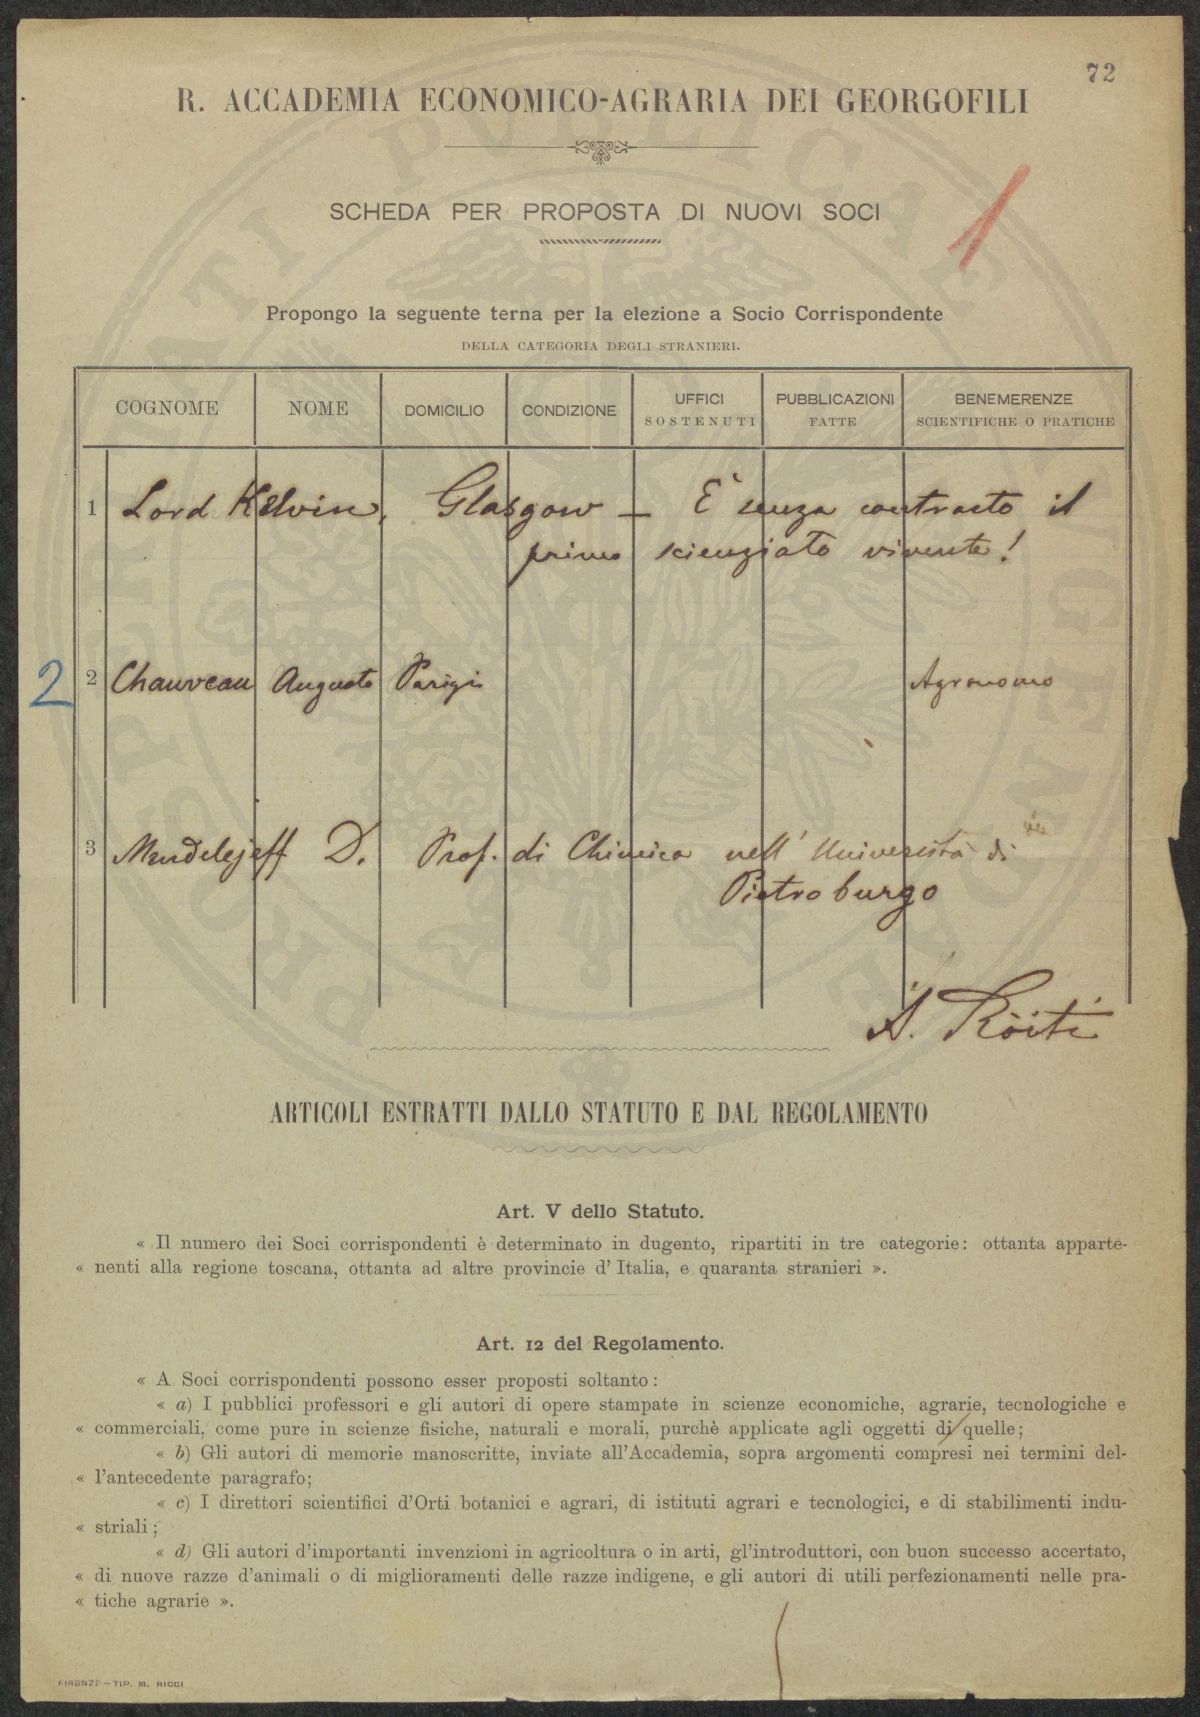 72
R. ACCADEMIA ECONOMICO-AGRARIA DEI GEORGOFILI
1
SCHEDA PER PROPOSTA DI NUOVI SOCI
Propongo la seguente terna per la elezione a Socio Corrispondente
DELLA CATEGORIA DEGLI STRANIERI.
COGNOME NOME DOMICILIO CONDIZIONE UFFICI SOSTENUTI PUBBLICAZIONI FATTE BENEMERENZE SCIENTIFICHE O PRATICHE
1 Lord Kelvin, Glasgow — È senza contrasto il
primo scienziato vivente!
2 2 Chauveau Augusto Parigi Agronomo
3 Mendelejeff D. Prof. di Chimica nell' Università di
Pietroburgo
A. Ròiti
ARTICOLI ESTRATTI DALLO STATUTO E DAL REGOLAMENTO
Art. V dello Statuto.
« Il numero dei Soci corrispondenti è determinato in dugento, ripartiti in tre categorie: ottanta apparte-
« nenti alla regione toscana, ottanta ad altre provincie d'Italia, e quaranta stranieri ».
Art. 12 del Regolamento.
« A Soci corrispondenti possono esser proposti soltanto:
« a) I pubblici professori e gli autori di opere stampate in scienze economiche, agrarie, tecnologiche e
« commerciali, come pure in scienze fisiche, naturali e morali, purchè applicate agli oggetti di quelle;
« b) Gli autori di memorie manoscritte, inviate all'Accademia, sopra argomenti compresi nei termini del-
« l'antecedente paragrafo;
« c) I direttori scientifici d'Orti botanici e agrari, di istituti agrari e tecnologici, e di stabilimenti indu-
« striali;
« d) Gli autori d'importanti invenzioni in agricoltura o in arti, gl'introduttori, con buon successo accertato,
« di nuove razze d'animali o di miglioramenti delle razze indigene, e gli autori di utili perfezionamenti nelle pra-
« tiche agrarie ».
FIRENZE — TIP. M. RICCI
PROSPERITATI PUBLICAE AUGENDAE